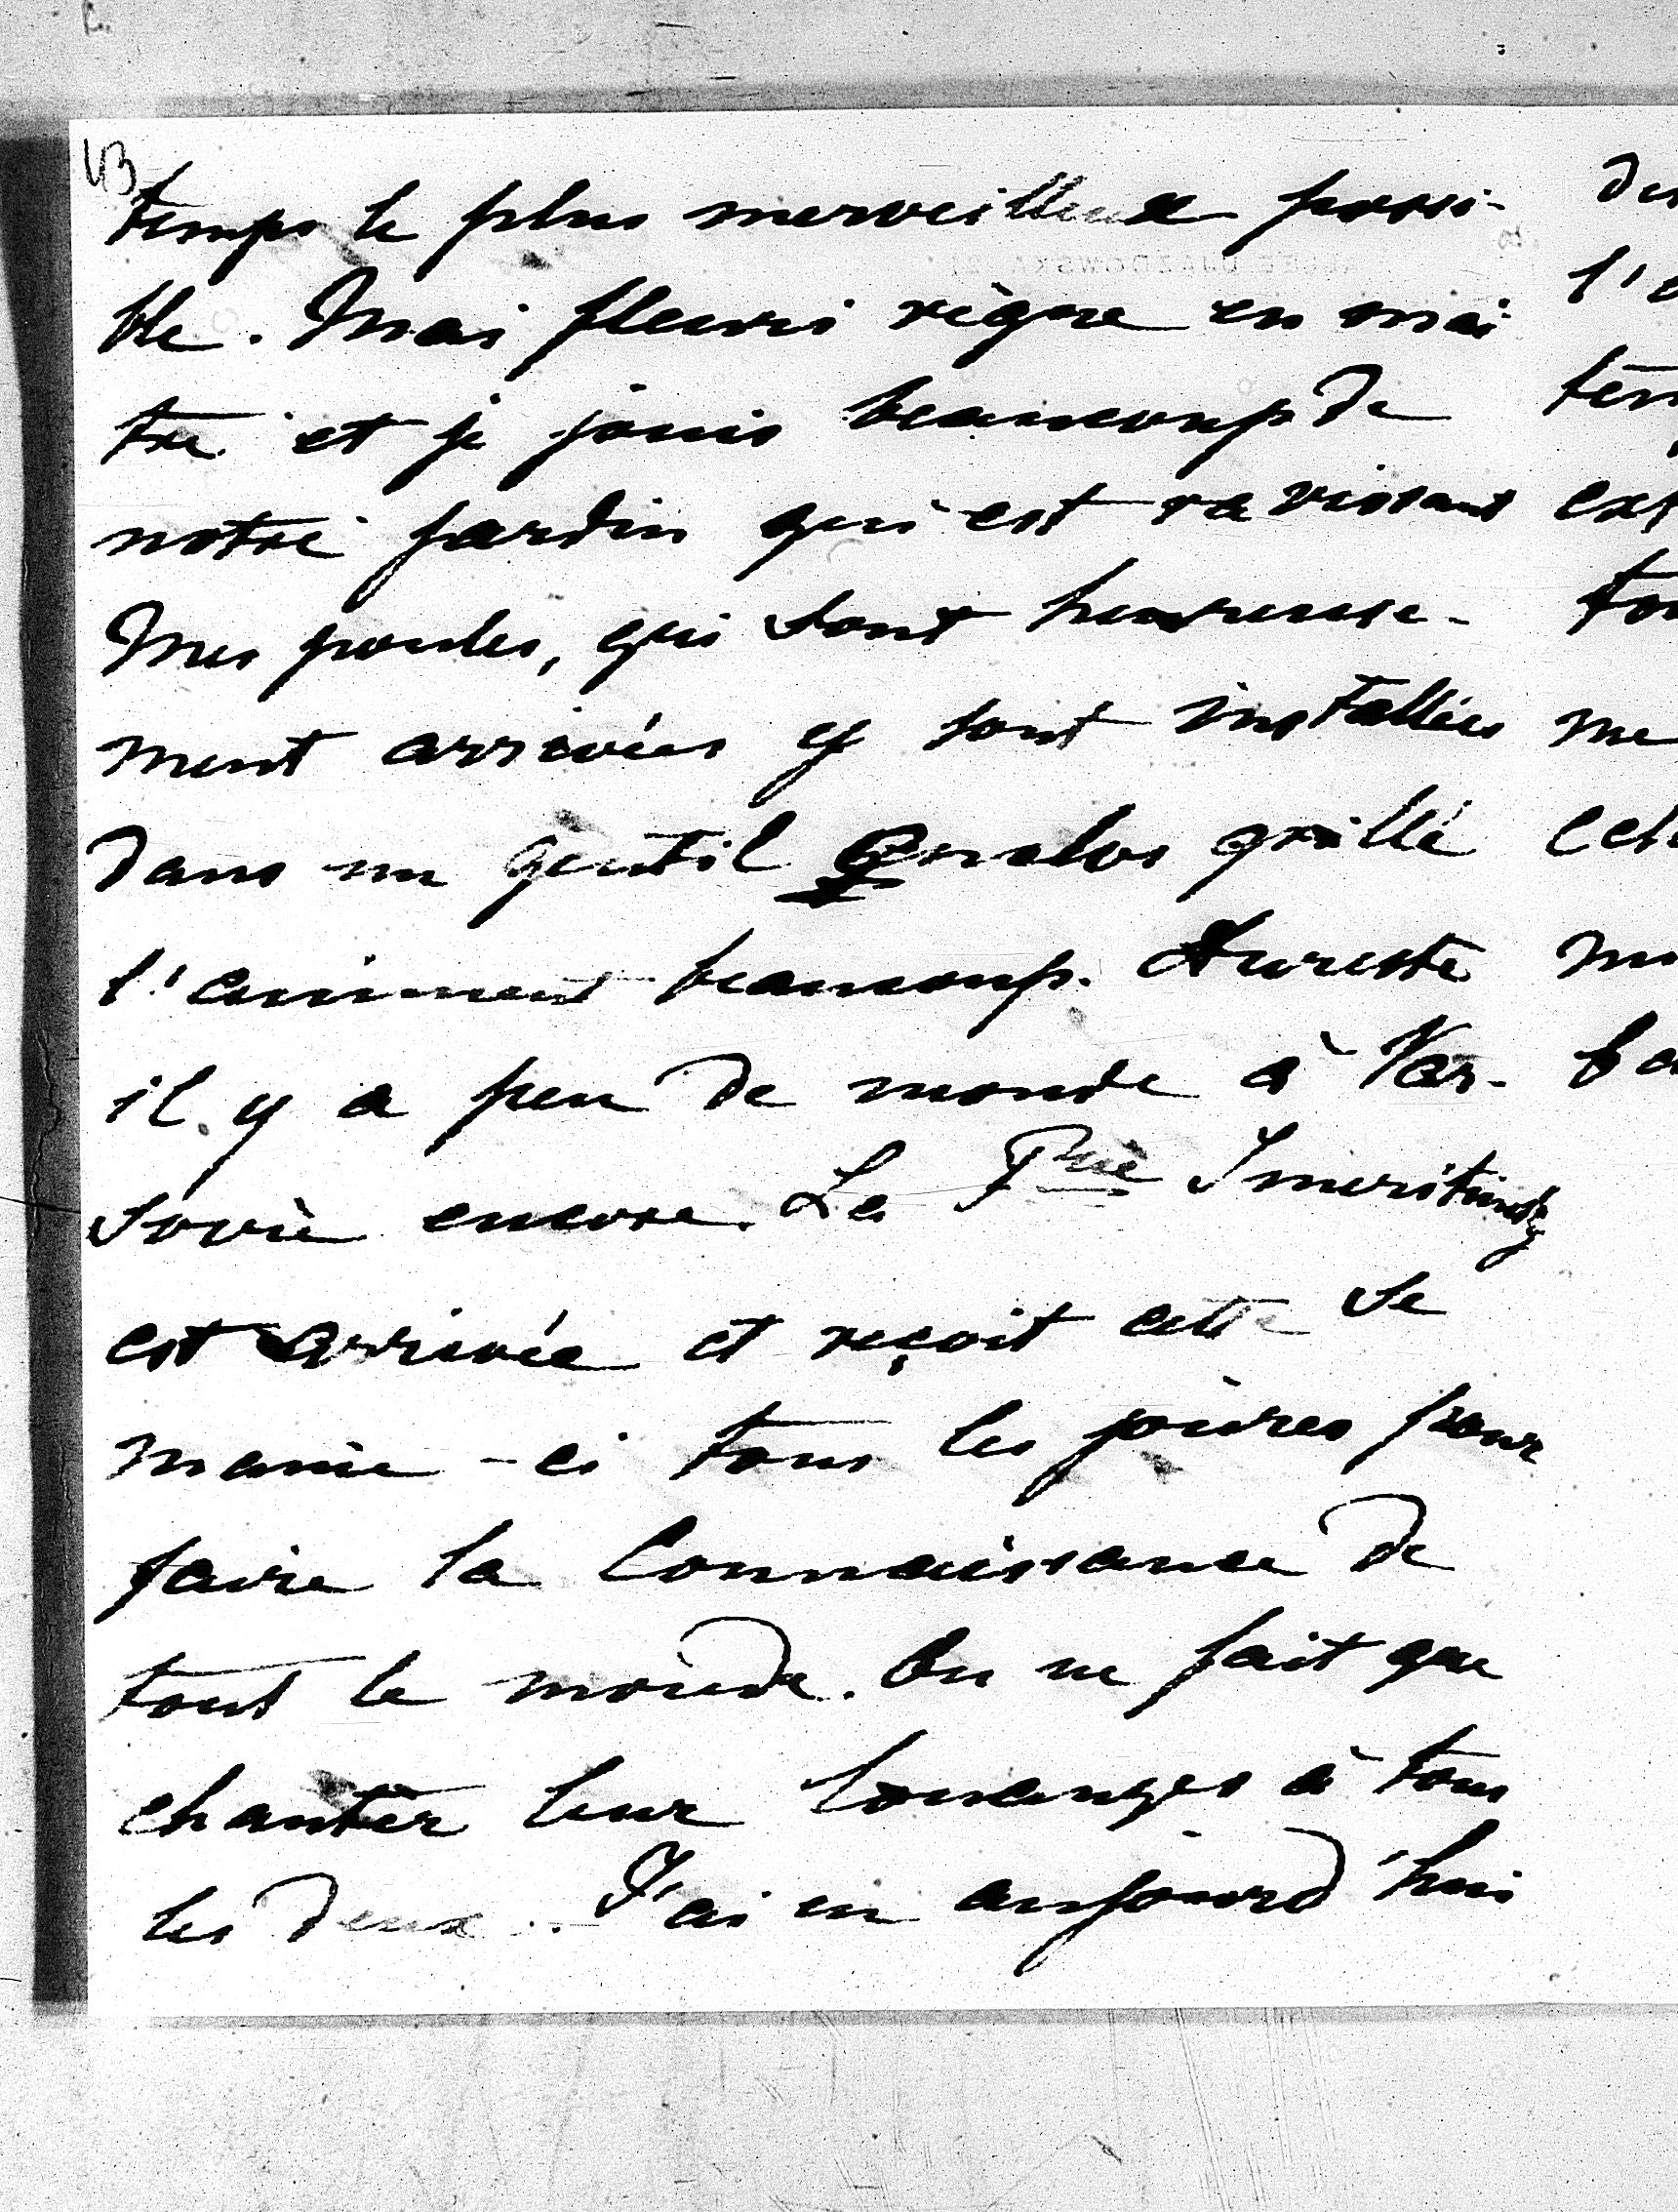 43
temps le plus merveilleux possi-
ble. Mai fleuri règne en maî
tre et je jouis beaucoup de
notre jardin qui est ravissant
Mes poules, qui sont heureuse-
ment arrivées y sont installées
dans un gentil enclos grillé
l'animent beaucoup. Aureste
il y a peu de monde à Var-
sovie encore. La Pcsse Imeritinsky
est arrivée et reçoit cette se
maine-ci tous les jours pour
faire la connaissance de
tout le monde. On ne fait que
chanter leur louanges à tous
les deux. J'ai eu aujourd'hui